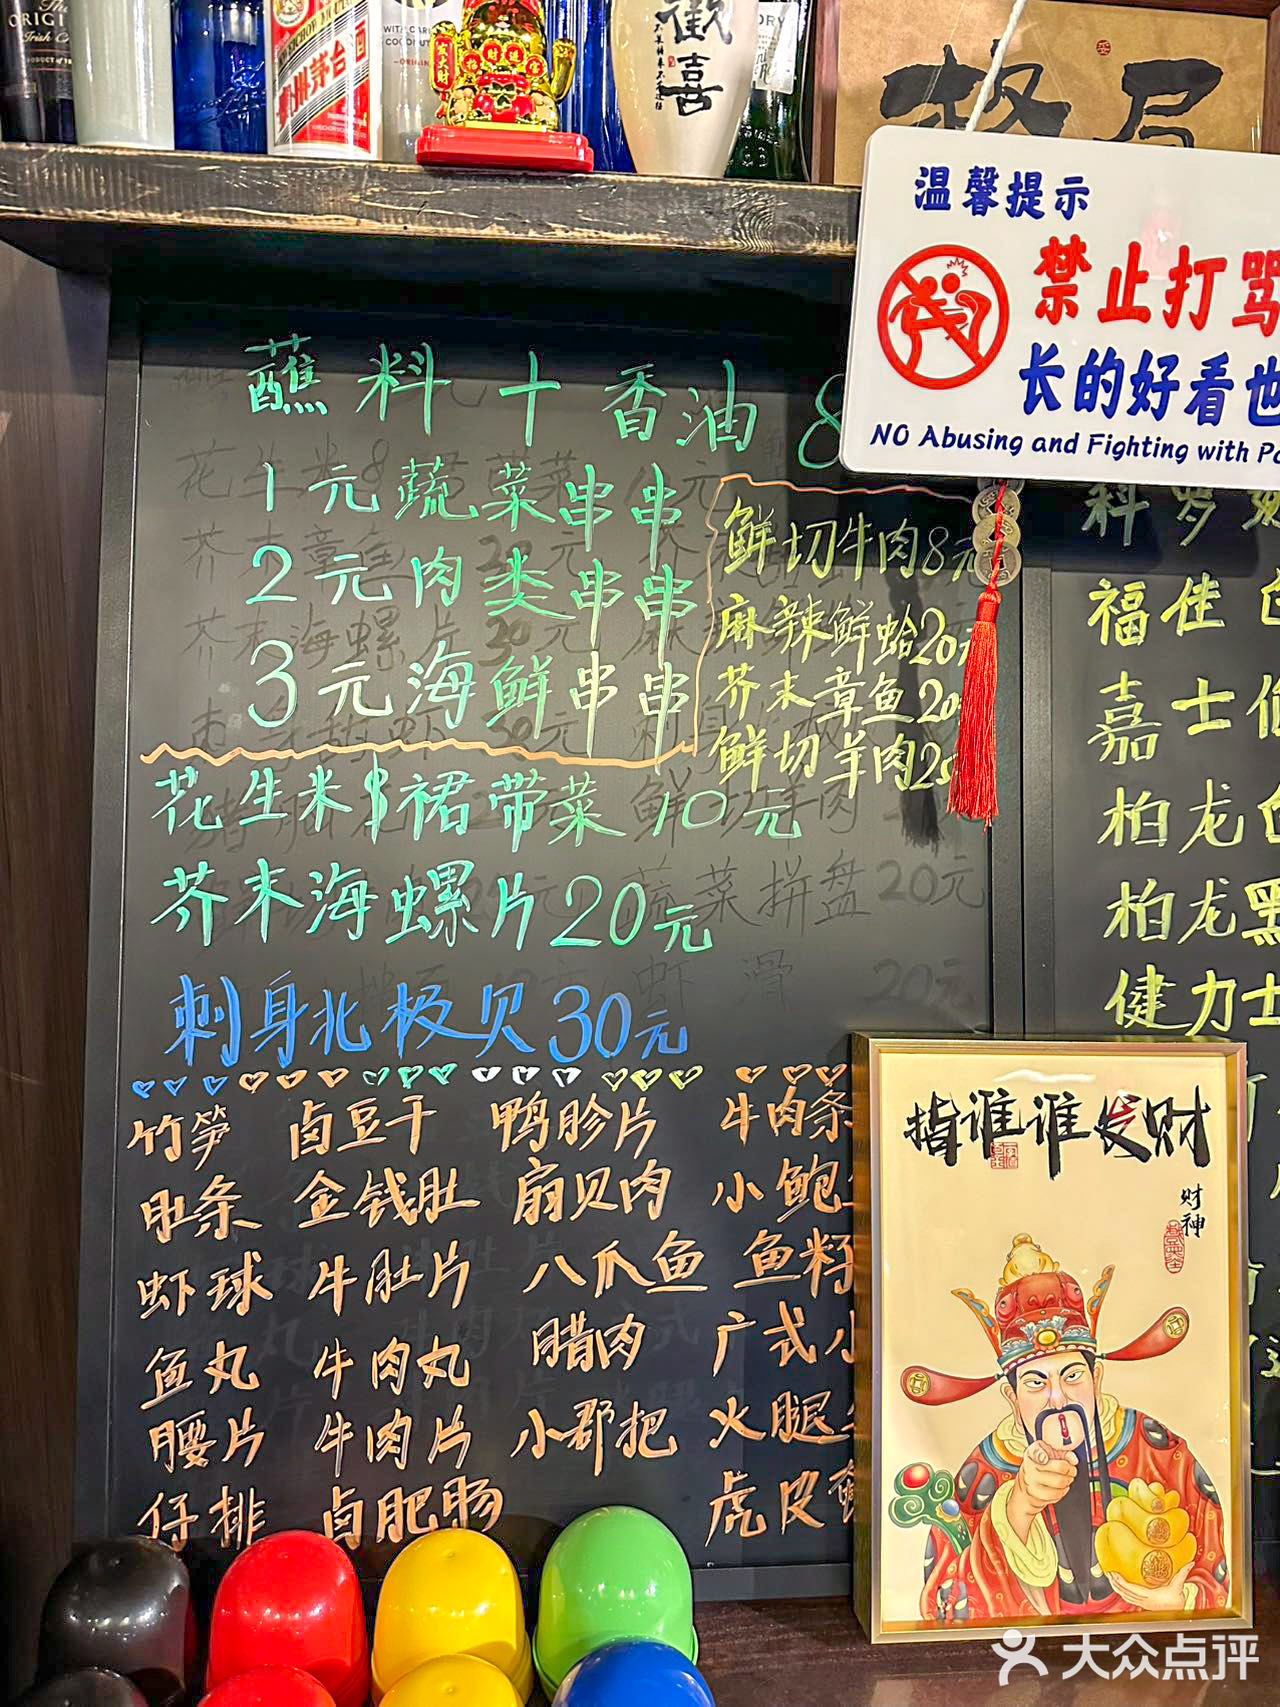 The
ORIGI
Irish C
PRODUCT OF
贵州茅台酒
WITH CARI
COCONUT
ORIGIN
发大财
招财进宝
歡喜
ORY
格局
温馨提示
禁止打骂
长的好看也
NO Abusing and Fighting with Pa
蘸料+香油 8
1元蔬菜串串
2元肉类串串
3元海鲜串串
鲜切牛肉8元
麻辣鲜蛤20元
芥末章鱼20
鲜切羊肉25
花生米8裙带菜10元
芥末海螺片20元
刺身北极贝30元
蔬菜拼盘20元
虾滑 20元
竹笋 卤豆干 鸭胗片 牛肉条
肚条 金钱肚 扇贝肉 小鲍
虾球 牛肚片 八爪鱼 鱼籽
鱼丸 牛肉丸 腊肉 广式小
腰片 牛肉片 小郡把 火腿
仔排 卤肥肠 虎皮
科罗
福佳白
嘉士伯
柏龙白
柏龙黑
健力士
指谁谁发财
财神
大众点评